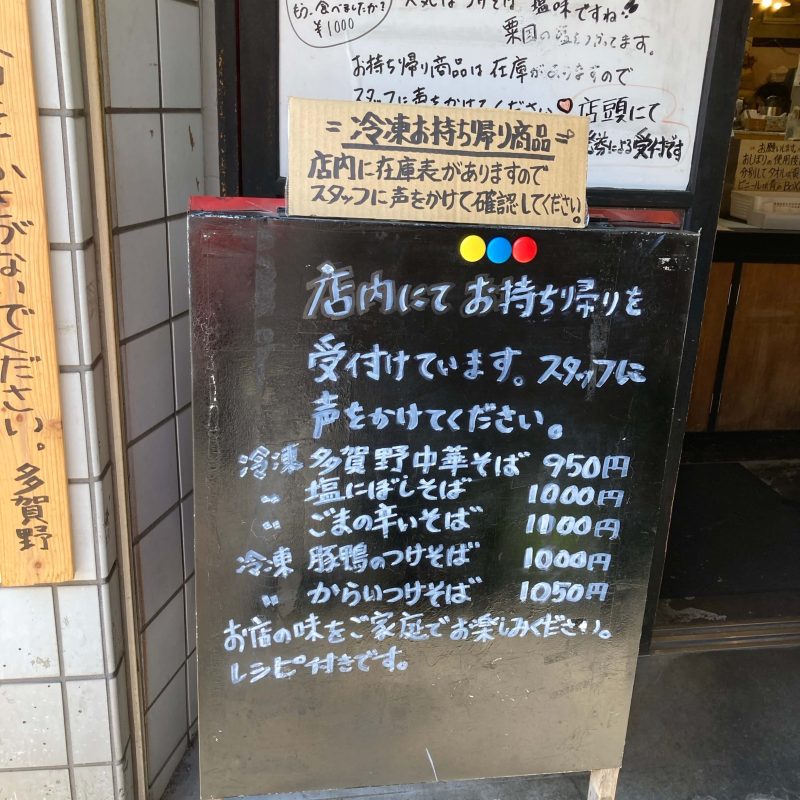 もう、食べましたか?
¥1000
塩味ですね!!
粟国の塩をつかってます。
お持ち帰り商品は在庫がありますので
スタッフに声をかけてください♥店頭にて
受付です
=冷凍お持ち帰り商品=
店内に在庫表がありますので
スタッフに声をかけて確認してください。
店内にてお持ち帰りを
受付けています。スタッフに
声をかけてください。
冷凍 多賀野中華そば 950円
〃 塩にぼしそば 1000円
〃 ごまの辛いそば 1100円
冷凍 豚鴨のつけそば 1000円
〃 からいつけそば 1050円
お店の味をご家庭でお楽しみください。
レシピ付きです。
さがないでください。多賀野
お願いします
おしぼりの使用後